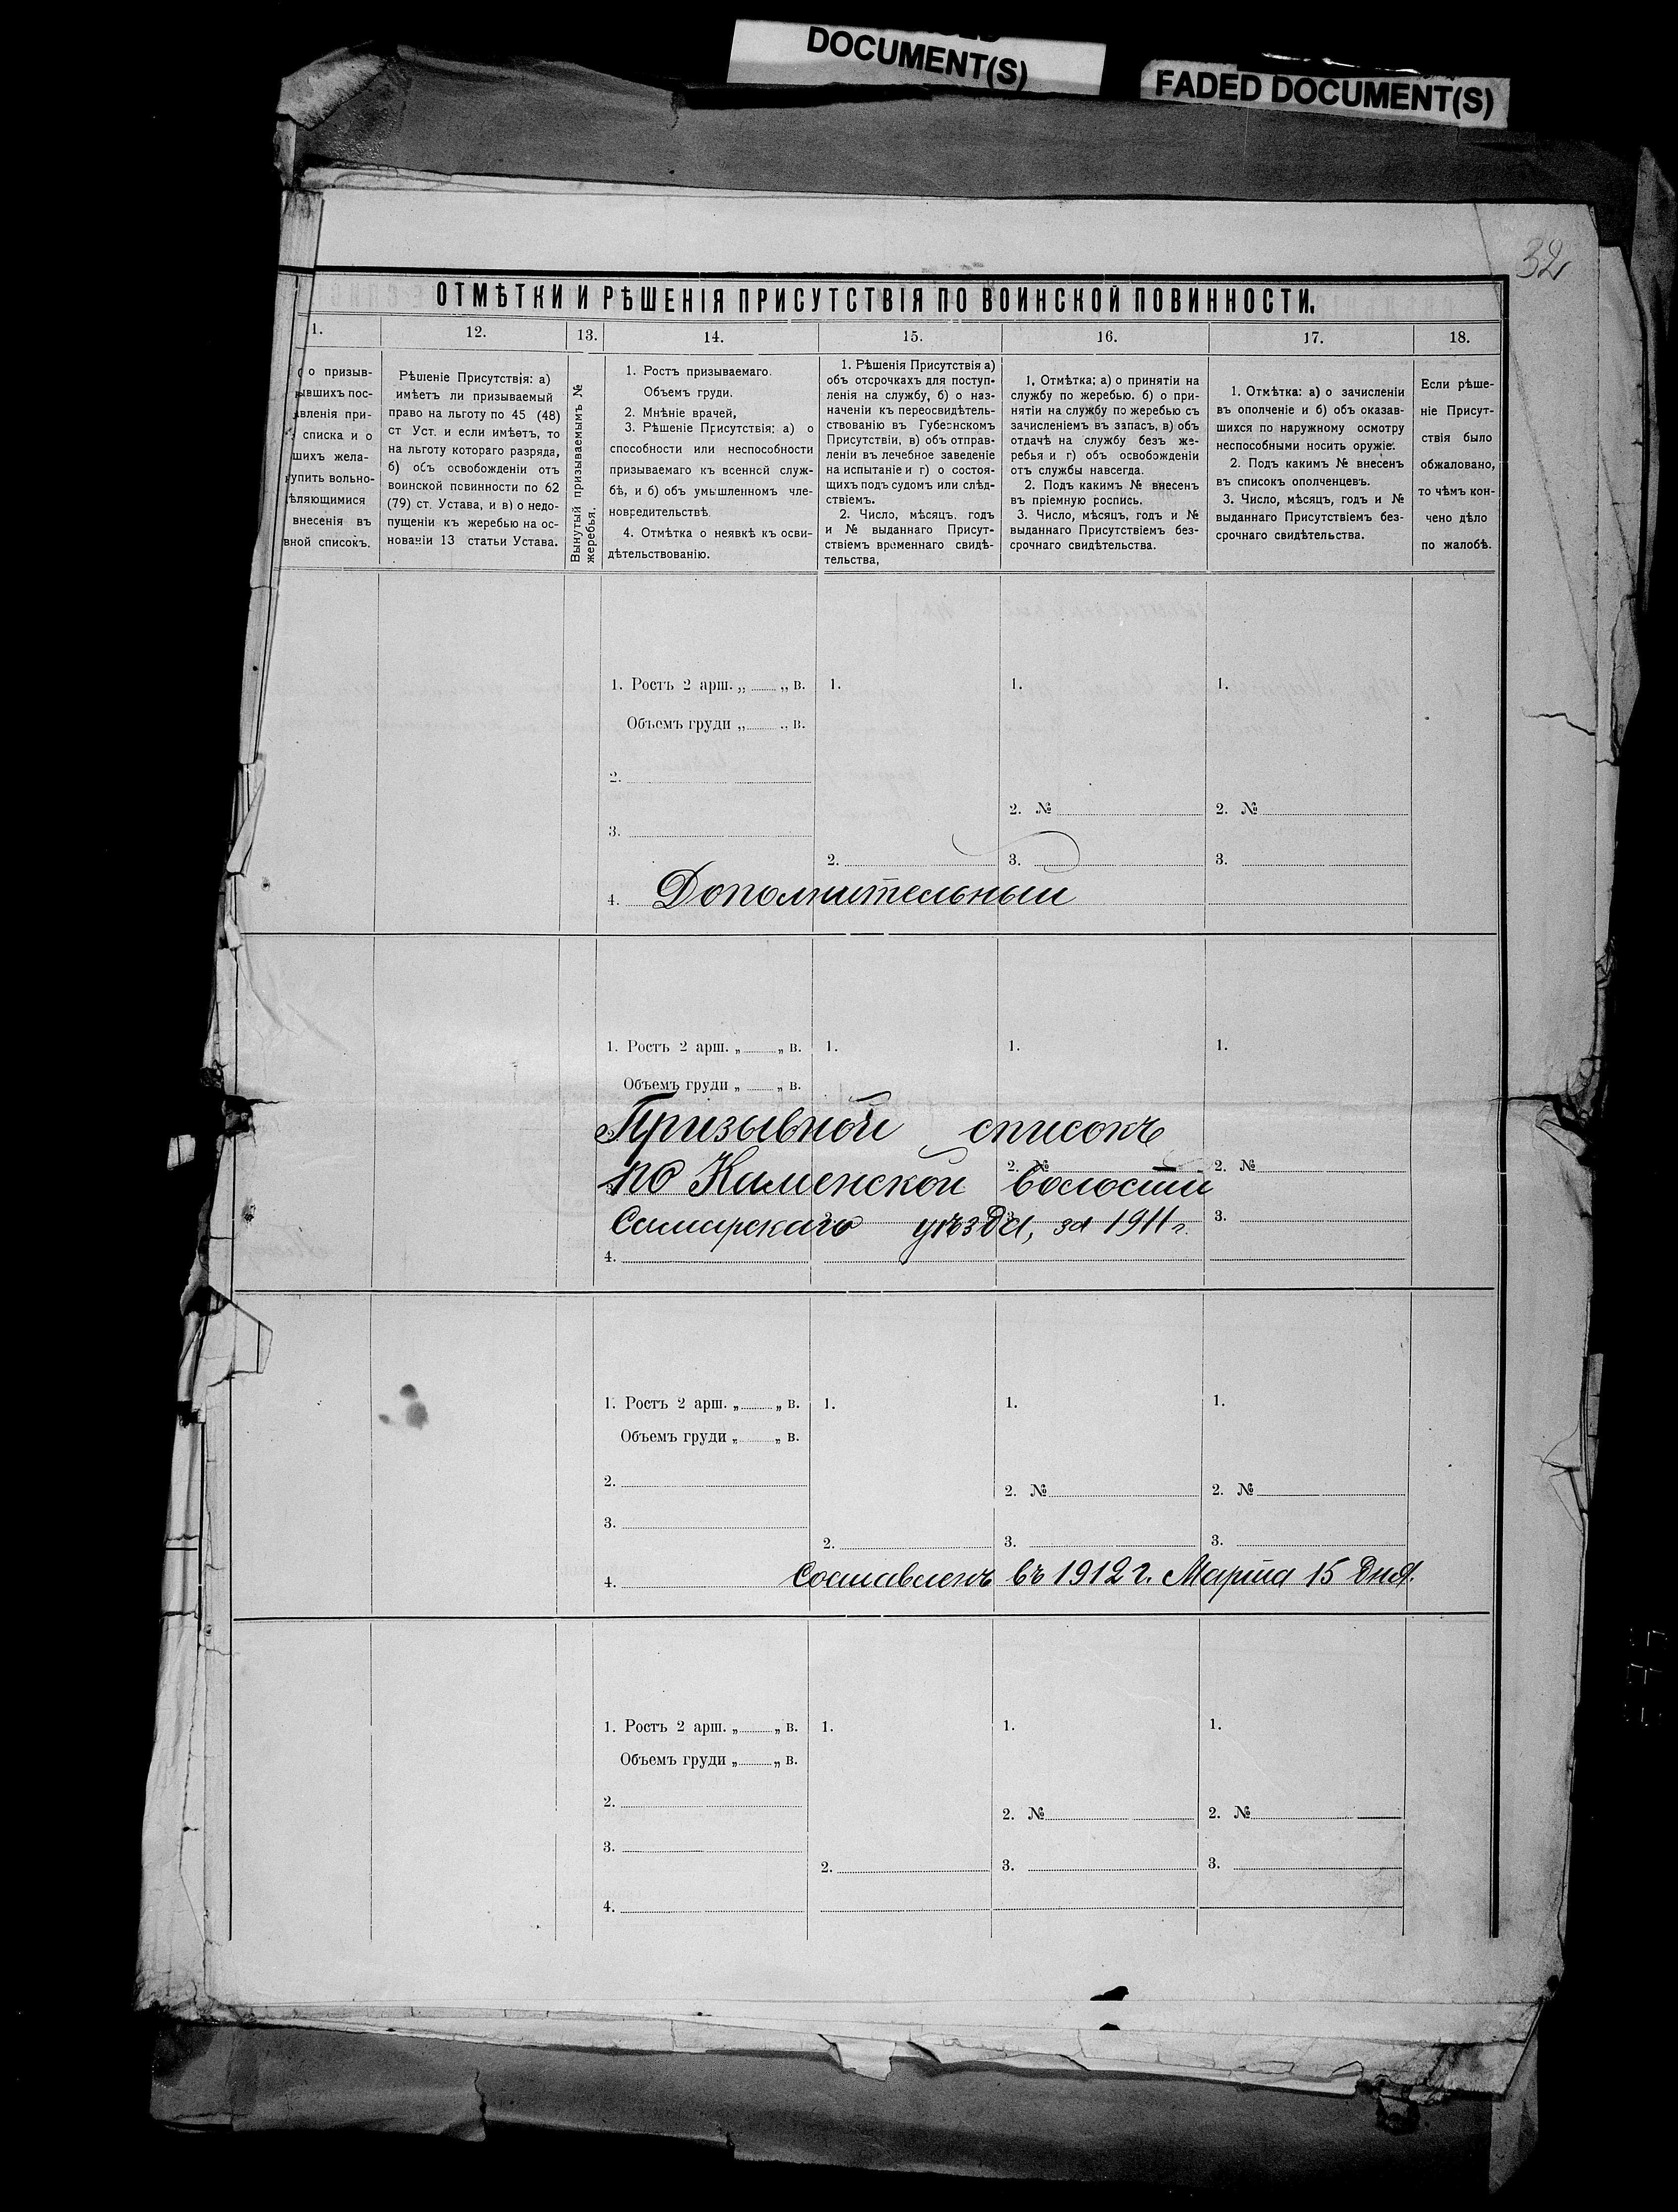 DOCUMENT(S)
FADED DOCUMENT(S)
32
ОТМѢТКИ И РѢШЕНІЯ ПРИСУТСТВІЯ ПО ВОИНСКОЙ ПОВИННОСТИ.
1.
о призыв-
ывшихъ пос-
авленія при-
списка и о
шихъ жела-
упить вольно-
ѣляющимися
внесенія въ
вной списокъ.
12.
Рѣшеніе Присутствія: а)
имѣетъ ли призываемый
право на льготу по 45 (48)
ст Уст. и если имѣетъ, то
на льготу котораго разряда,
б) объ освобожденіи отъ
воинской повинности по 62
(79) ст. Устава, и в) о недо-
пущеніи къ жеребью на ос-
нованіи 13 статьи Устава.
13.
Вынутый призываемымъ №
жеребья.
14.
1. Ростъ призываемаго.
Объемъ груди.
2. Мнѣніе врачей,
3. Рѣшеніе Присутствія: а) о
способности или неспособности
призываемаго къ военной служ-
бѣ, и б) объ умышленномъ чле-
новредительствѣ.
4. Отмѣтка о неявкѣ къ осви-
дѣтельствованію.
15.
1. Рѣшенія Присутствія а)
объ отсрочкахъ для поступ-
ленія на службу, б) о наз-
наченіи къ переосвидѣтель-
ствованію въ Губернскомъ
Присутствіи, в) объ отправ-
леніи въ лечебное заведеніе
на испытаніе и г) о состоя-
щихъ подъ судомъ или слѣд-
ствіемъ.
2. Число, мѣсяцъ, годъ
и № выданнаго Присут-
ствіемъ временнаго свидѣ-
тельства,
16.
1. Отмѣтка: а) о принятіи на
службу по жеребью. б) о при-
нятіи на службу по жеребью съ
зачисленіемъ въ запасъ, в) объ
отдачѣ на службу безъ же-
ребья и г) объ освобожденіи
отъ службы навсегда.
2. Подъ какимъ № внесенъ
въ пріемную роспись.
3. Число, мѣсяцъ, годъ и №
выданнаго Присутствіемъ без-
срочнаго свидѣтельства.
17.
1. Отмѣтка: а) о зачисленіи
въ ополченіе и б) объ оказав-
шихся по наружному осмотру
неспособными носить оружіе.
2. Подъ какимъ № внесенъ
въ списокъ ополченцевъ.
3. Число, мѣсяцъ, годъ и №
выданнаго Присутствіемъ без-
срочнаго свидѣтельства.
18.
Если рѣше-
ніе Присут-
ствія было
обжаловано,
то чѣмъ кон-
чено дѣло
по жалобѣ.
1. Ростъ 2 арш. „ „ в. 1. 1. 1.
Объемъ груди „ „ в.
2.
2. № 2. №
3.
2. 3. 3.
4. Дополнительный
1. Ростъ 2 арш. „ „ в. 1. 1. 1.
Объемъ груди „ „ в.
Призывной списокъ
2. № 2. №
по Каменской волости
3.
Самарскаго уѣзда, за 1911 г.
4.
1. Ростъ 2 арш. „ „ в. 1. 1. 1.
Объемъ груди „ „ в.
2.
2. № 2. №
3.
2. 3. 3.
4. Составленъ въ 1912 г. Марта 15 дня.
1. Ростъ 2 арш. „ „ в. 1. 1. 1.
Объемъ груди „ „ в.
2.
2. № 2. №
3.
2. 3. 3.
4.